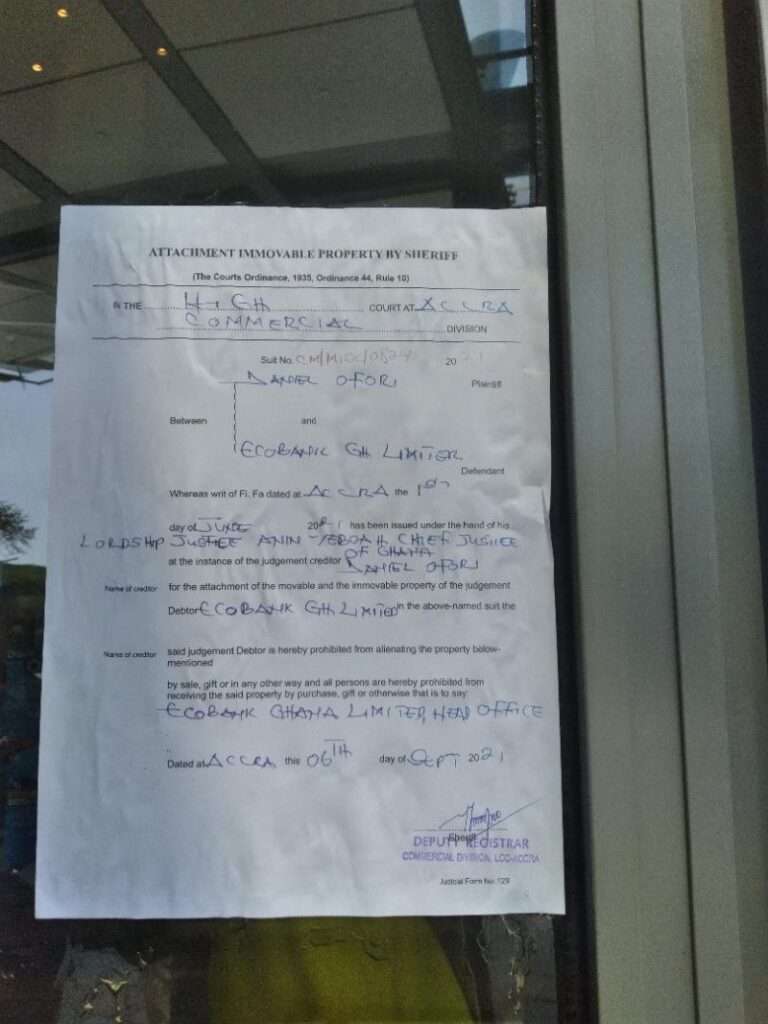 ATTACHMENT IMMOVABLE PROPERTY BY SHERIFF
(The Courts Ordinance, 1935, Ordinance 44, Rule 10)
IN THE HIGH COURT AT ACCRA
COMMERCIAL DIVISION
Suit No. 2021
DANIEL OFORI Plaintiff
Between and
ECOBANK GH LIMITED
Defendant
Whereas writ of Fi. Fa dated at ACCRA the 1st
day of JUNE 2021 has been issued under the hand of his
LORDSHIP JUSTICE ANIN-YEBOAH, CHIEF JUSTICE
OF GHANA
at the instance of the judgement creditor DANIEL OFORI
Name of creditor for the attachment of the movable and the immovable property of the judgement
Debtor ECOBANK GH LIMITED in the above-named suit the
Name of creditor said judgement Debtor is hereby prohibited from alienating the property below-
mentioned
by sale, gift or in any other way and all persons are hereby prohibited from
receiving the said property by purchase, gift or otherwise that is to say:
ECOBANK GHANA LIMITED, HEAD OFFICE
Dated at ACCRA this 06TH day of SEPT 2021
Sheriff
DEPUTY REGISTRAR
COMMERCIAL DIVISION, LCC-ACCRA
Judicial Form No. 129